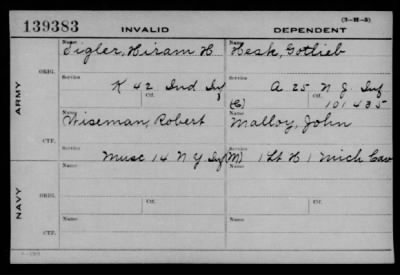 139383 INVALID DEPENDENT (3-M-3)
ARMY
ORIG.
Name Tigler, Hiram H
Name Besk, Gotlieb
Service K 42 Ind Inf
Service A 25 N J Inf
Ctf. Ctf.
(C) 101435
CTF.
Name Wiseman, Robert
Name Malloy, John
Service Musc 14 N Y Inf
Service (M) 1 Lt H 1 Mich Cav
NAVY
ORIG.
Name Name
Service Ctf. Service Ctf.
CTF.
Name Name
Service Service